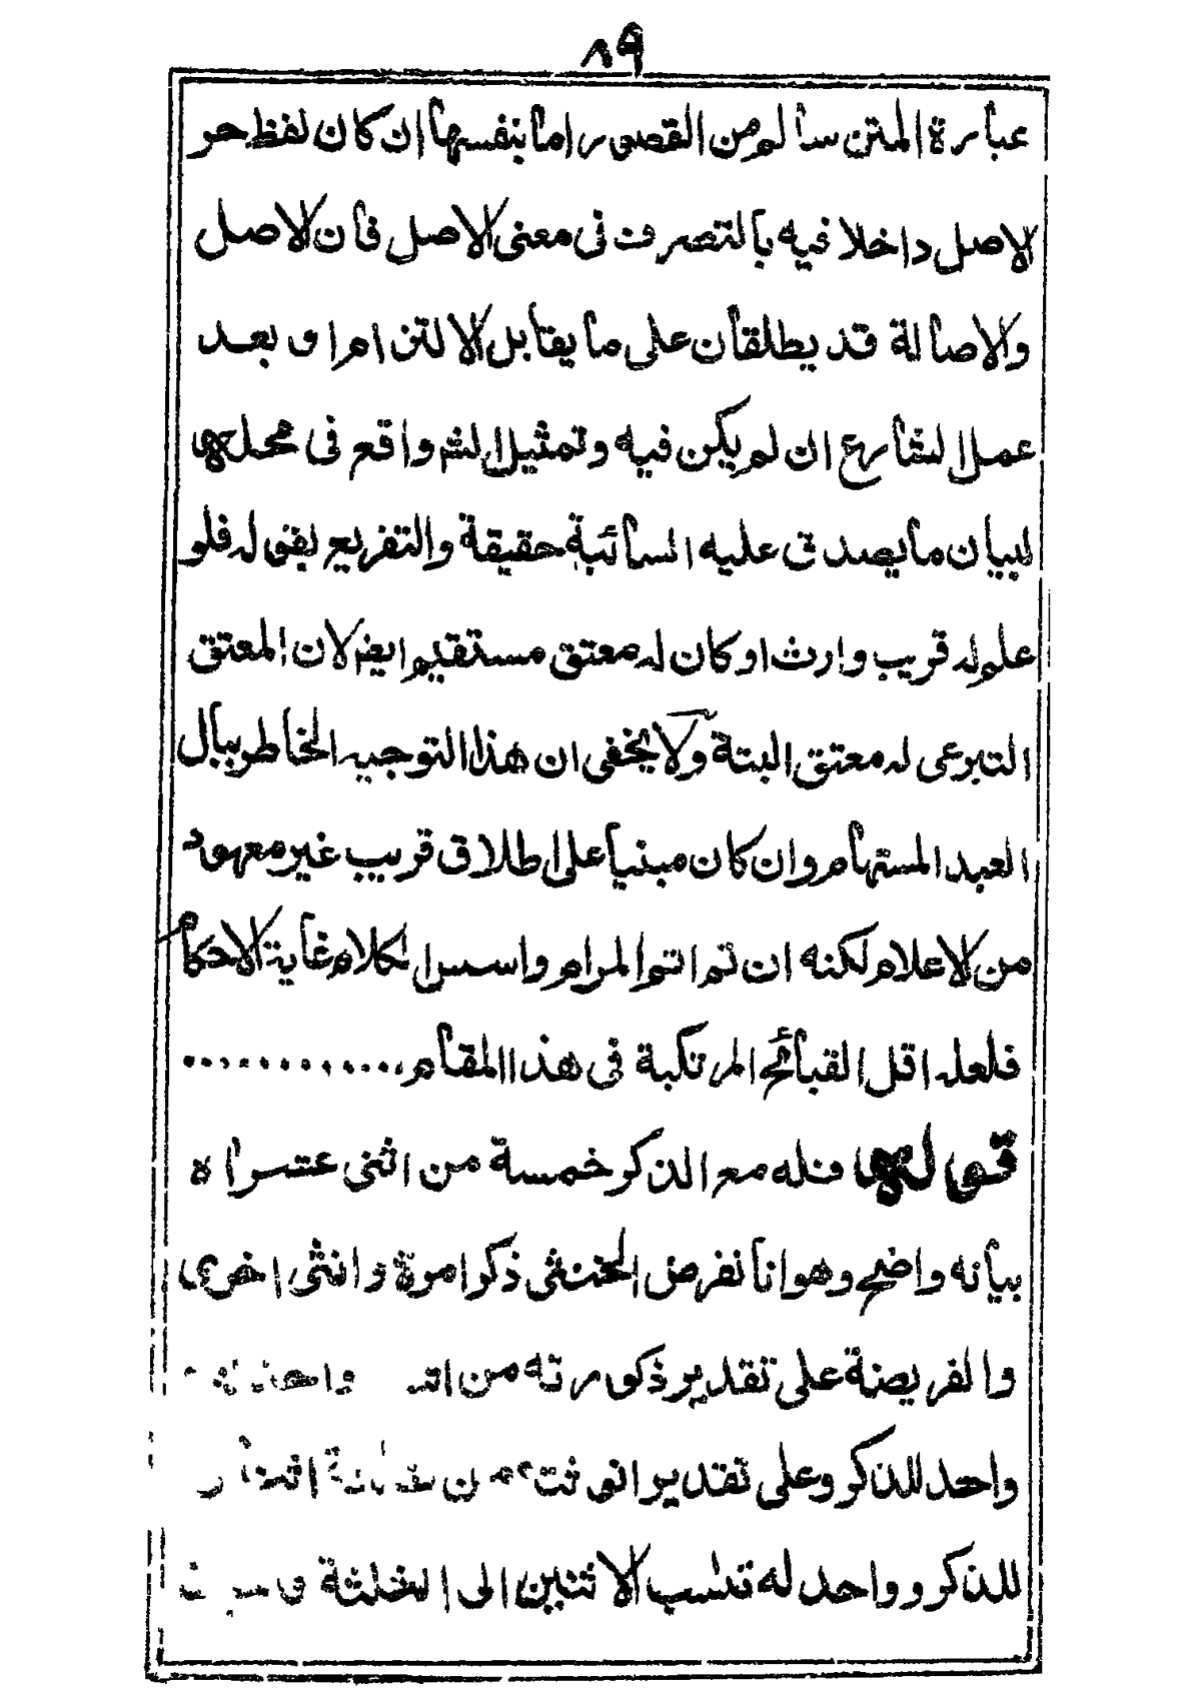 ٨٩
عبارة المتن سالم من القصور اما بنفسها ان كان لفظ حر
الاصل داخلا فيه بالتصرف فى معنى الاصل فان الاصل
والاصالة قد يطلقان على ما يقابل الالتزام او بعد
عمل الشارع ان لم يكن فيه وتمثيل الش واقع فى محله
لبيان ما يصدق عليه السائبة حقيقة والتفريع بقوله فلو
علم له قريب وارث او كان له معتق مستقيم ايض لان المعتق
التبرعى له معتق البتة ولا يخفى ان هذا التوجيه الخاطر ببال
العبد المستهام وان كان مبنيا على اطلاق قريب غير معهود
من الاعلام لكنه ان تم اتم المرام واسس الكلام غاية الاحكا
فلعله اقل القبائح المرتكبة فى هذا المقام ............
قوله فله مع الذكر خمسة من اثنى عشر اه
بيانه واضح وهو انا نفرض الخنثى ذكرا مرة وانثى اخرى
والفريضة على تقدير ذكورته من اثنين واحد له
واحد للذكر وعلى تقدير انوثته من ثلثة اثنان
للذكر وواحد له تنسب الاثنين الى الثلثة